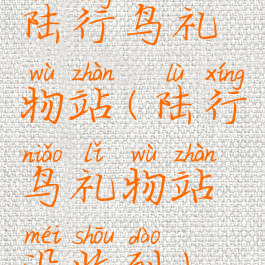 陆行鸟礼
wù zhàn lù xíng
物站(陆行
niǎo lǐ wù zhàn
鸟礼物站
méi shōu dào
没收到)